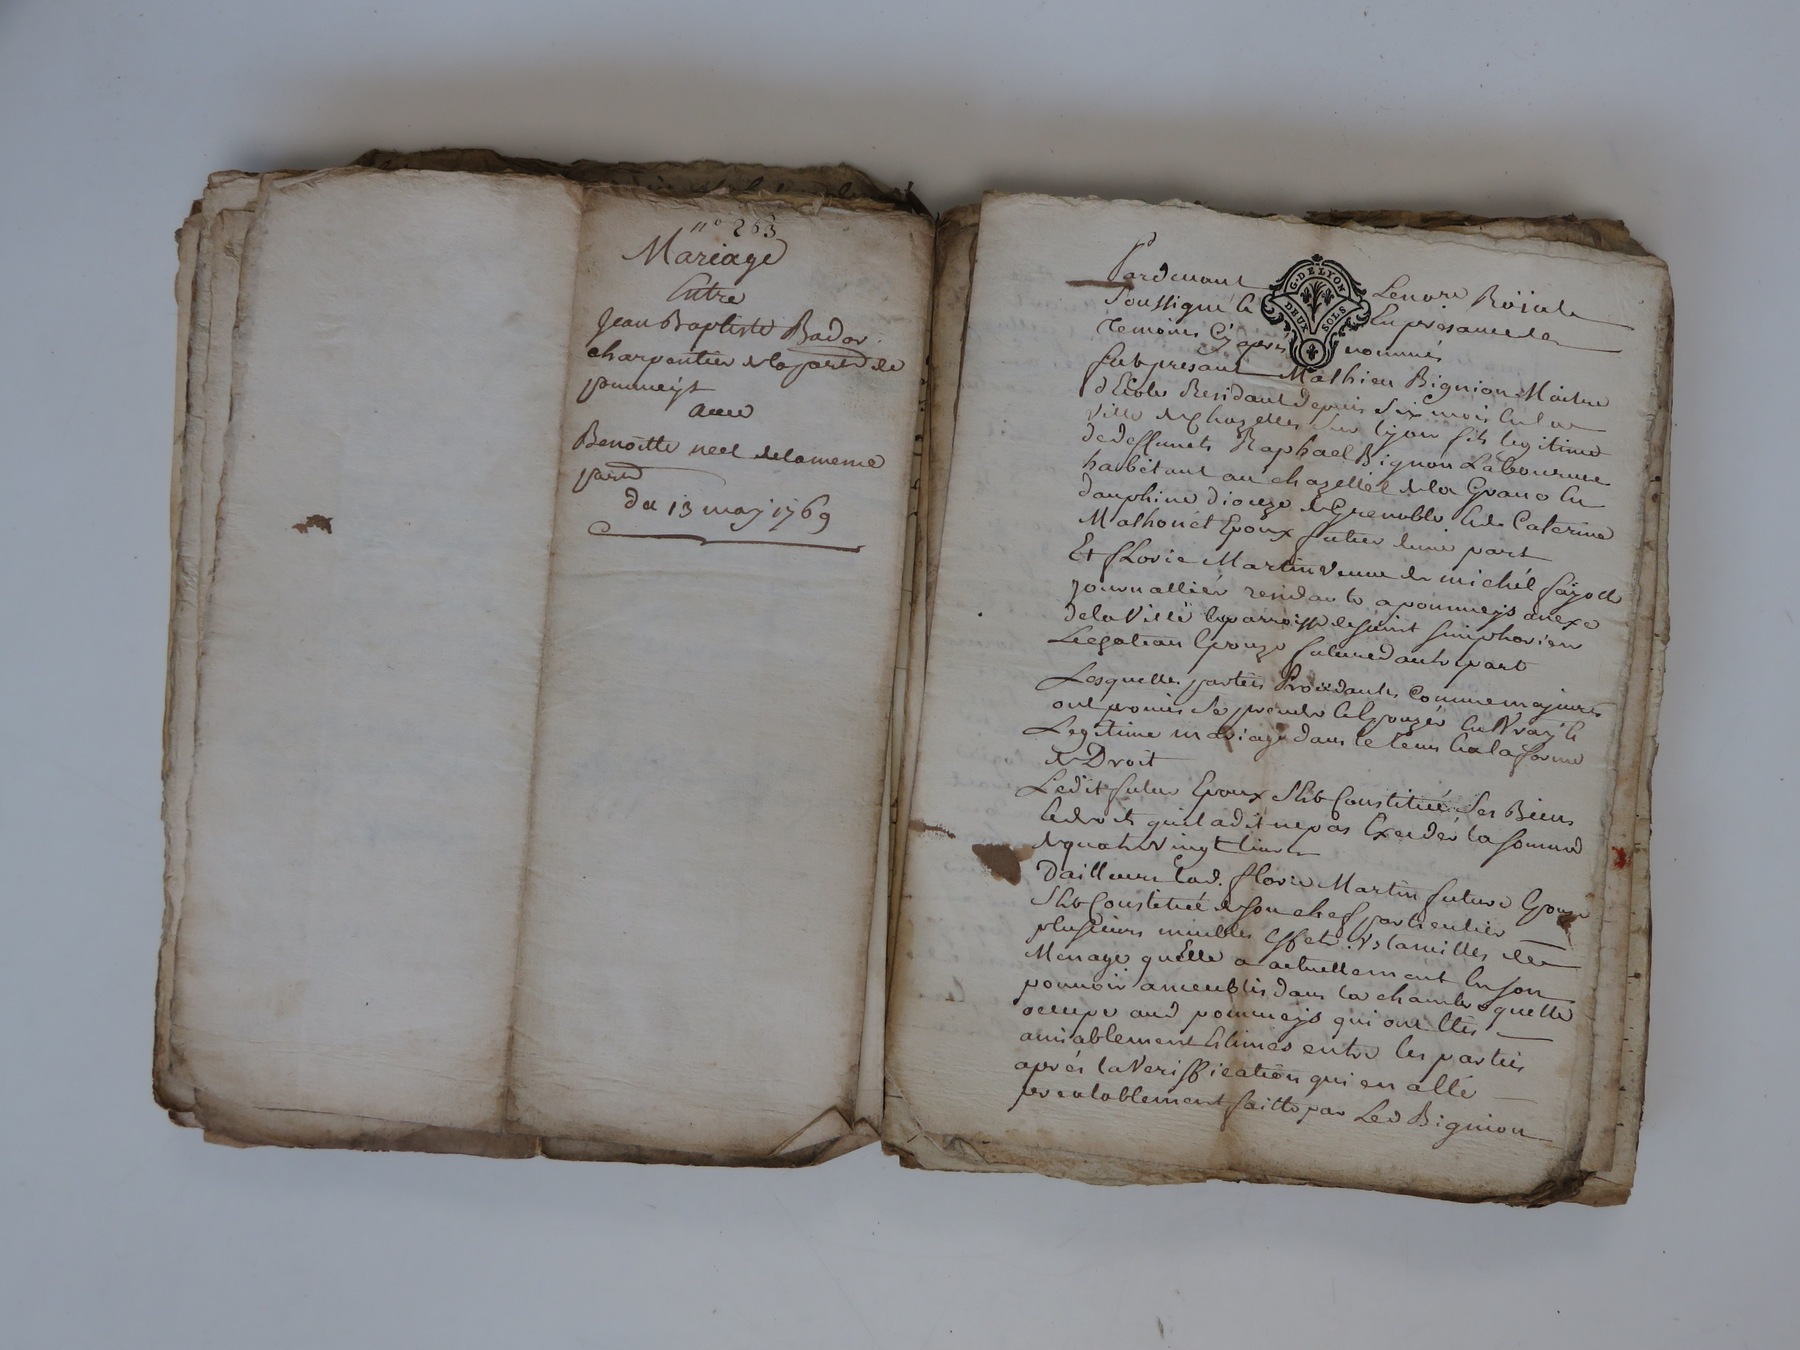 n° 263
Mariage
Entre
Jean Baptiste Bador
charpentier de la parr de
pommeys
avec
Benoitte neel de la meme
parr
du 13 may 1769
G. DE LYON
DEUX SOLS
Pardevant Le no.re Roïial
Soussigné & En presance des
Temoins cÿ après nommés
fut presant Mathieu Bignion Maitre
d'Ecole Residant depuis Six mois En la
Ville de Chazelles Sur lyon fils legitime
de deffunts Raphael Bignon Laboureur
habitant au chazellet de la Grave En
dauphine diouze de Grenoble & de Caterine
Mathonet Epoux futur d'une part
Et fLorie Martin veuve de michél fayolle
journalliér residante a pommeys anexe
de la Ville & parroisse de saint simphorien
Le chateau Epouze future d'autre part
Lesquelles parties Procedantes comme majeures
ont promis Se prendre & Epouzér En Vraÿ &
Legitime mariage dans le tems & a la forme
de Droit
Ledit futur Epoux S'est Constitué Ses Biens
& droits qu'il a dit ne pas Exceder la somme
de quatre Vingt livres
D'ailleurs lad. florie Martin future Epouse
S'est Constitué de son chef particulier
plusieurs meubles Effets Vstancilles de
Menage qu'Elle a actuellement En son
pouvoir ameublis dans la chambre quelle
occupe aud pommeys qui ont Etés
amiablement Estimés entre les parties
aprés la Veriffication qui en a Eté
prealablement faitte par Led Bignion